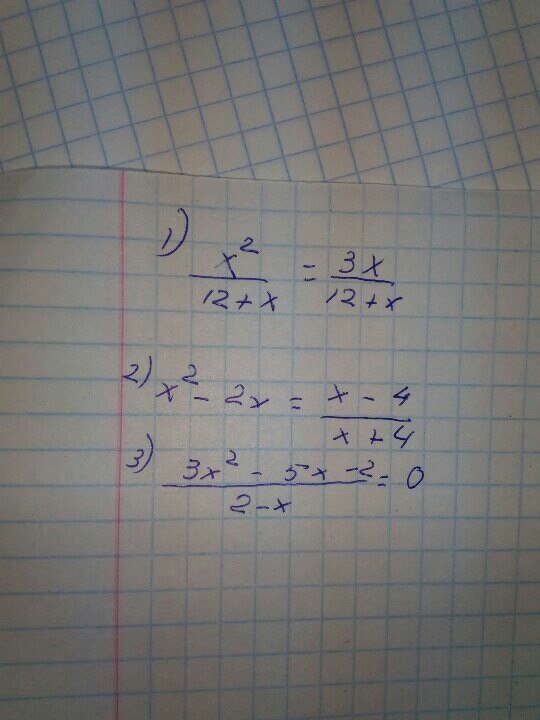 1) x²/(12+x) = 3x/(12+x)
2) x² - 2x = (x - 4)/(x + 4)
3) (3x² - 5x - 2)/(2-x) = 0